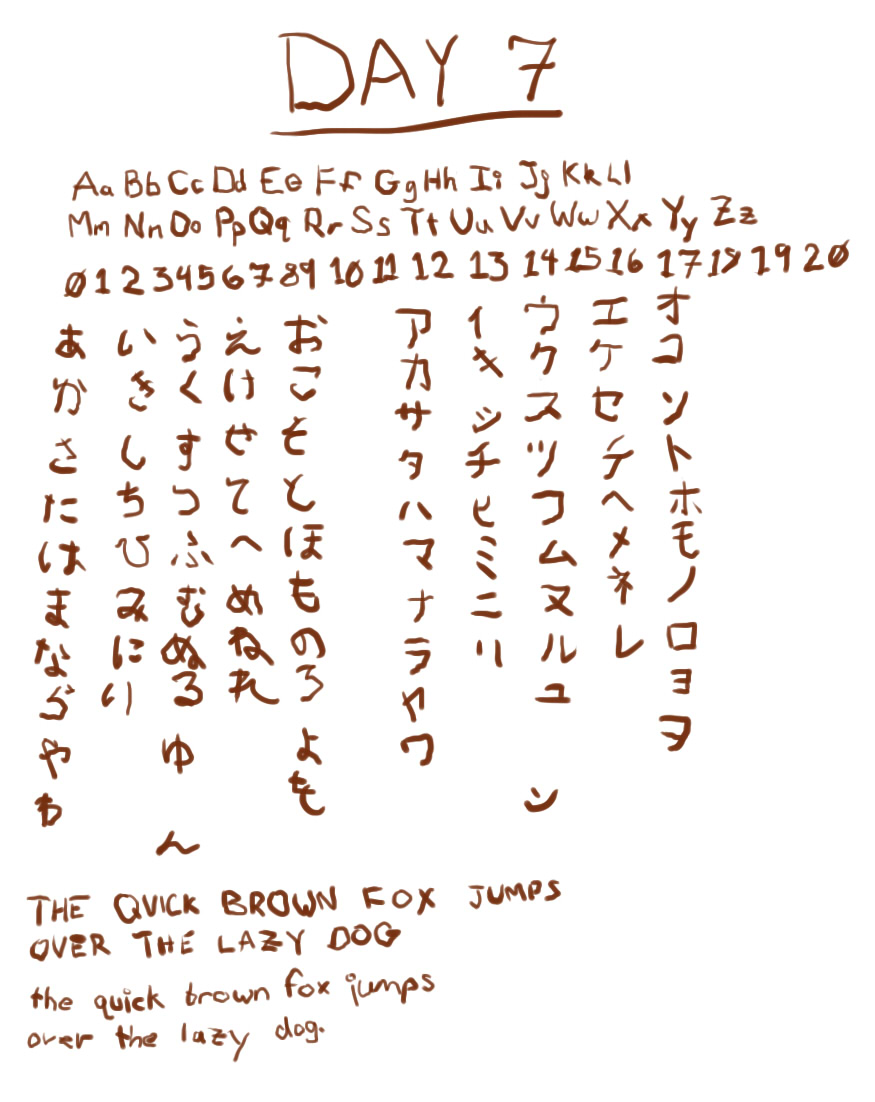 DAY 7
Aa Bb Cc Dd Ee Ff Gg Hh Ii Jj Kk Ll
Mm Nn Oo Pp Qq Rr Ss Tt Uu Vv Ww Xx Yy Zz
0 1 2 3 4 5 6 7 8 9 10 11 12 13 14 15 16 17 18 19 20
あ い う え お ア イ ウ エ オ
か き く け こ カ キ ク ケ コ
さ し す せ そ サ シ ス セ ソ
た ち つ て と タ チ ツ テ ト
は ひ ふ へ ほ ハ ヒ フ ヘ ホ
ま み む め も マ ミ ム メ モ
な に ぬ ね の ナ ニ ヌ ネ ノ
ら り る れ ろ ラ リ ル レ ロ
や ゆ よ ヤ ユ ヨ
わ も ワ ヲ
ん ン
THE QUICK BROWN FOX JUMPS
OVER THE LAZY DOG
the quick brown fox jumps
over the lazy dog.